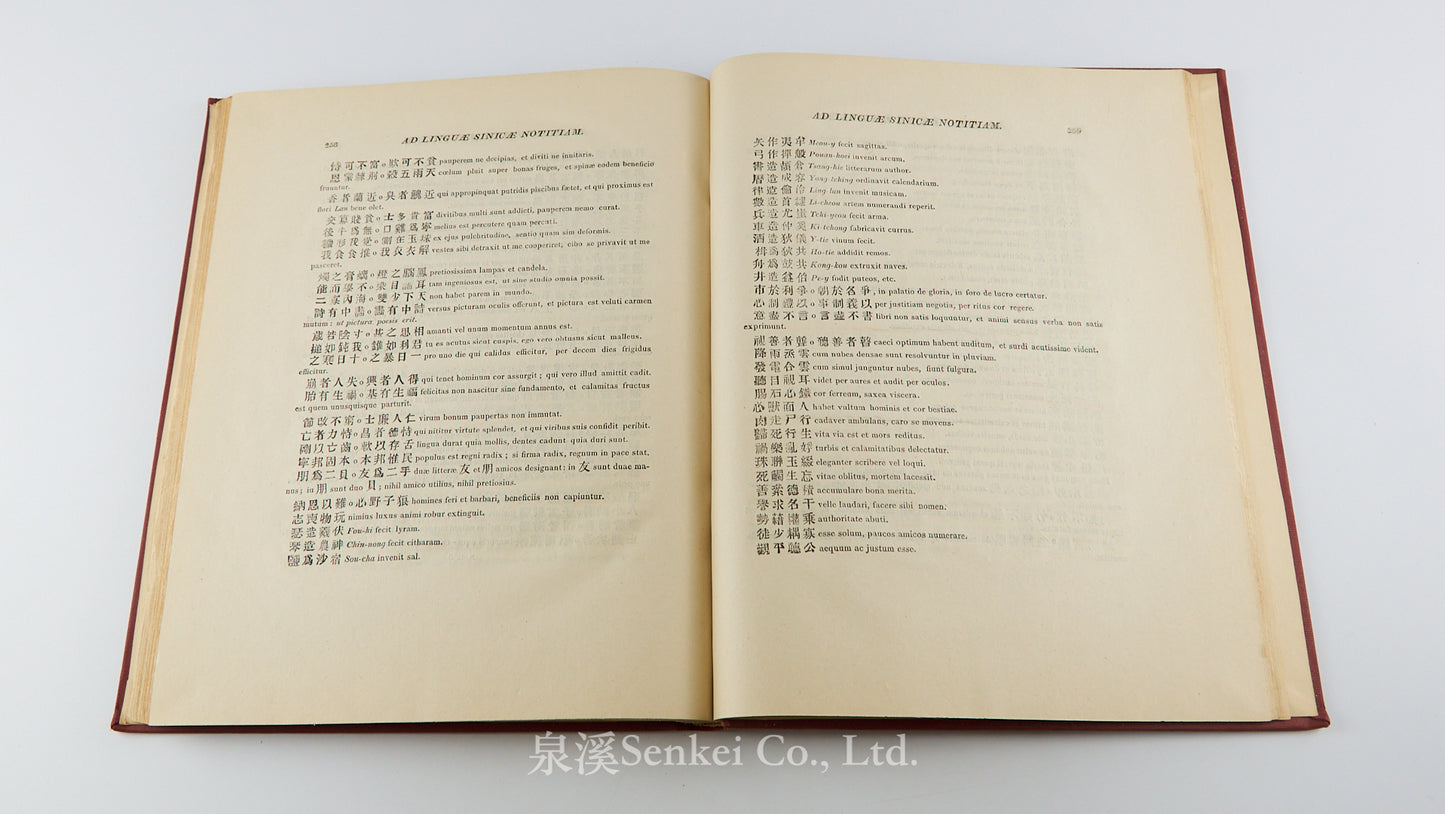 258
AD LINGUÆ SINICÆ NOTITIAM.
恃可不富。欺可不貧 pauperem ne decipias, et diviti ne innitaris.
恩蒙棘荊。穀五雨天 cœlum pluit super bonas fruges, et spinæ eodem beneficio
fruuntur.
香者蘭近。臭者鮑近 qui appropinquat putridis piscibus fœtet, et qui proximus est
flori Lan bene olet.
交寡賤貧。士多貴富 divitibus multi sunt addicti, pauperem nemo curat.
後牛爲無。口雞爲寧 melius est percutere quam percuti.
穢形我覺。側在玉珠 ex ejus pulchritudine, sentio quam sim deformis.
我食食推。我衣衣解 vestes sibi detraxit ut me cooperiret; cibo se privavit ut me
pasceret.
燭之膏 燈之腦鳳 pretiosissima lampas et candela.
能而學不。染目濡耳 tam ingeniosus est, ut sine studio omnia possit.
二寡內海。雙少下天 non habet parem in mundo.
詩有中畵。畵有中詩 versus picturam oculis offerunt, et pictura est veluti carmen
mutum: ut pictura poesis erit.
歲若陰寸。甚之思相 amanti vel unum momentum annus est.
槌如鈍我。錐如利君 tu es acutus sicut cuspis, ego vero obtusus sicut malleus.
之寒日十。之暴日一 pro uno die qui calidus efficitur, per decem dies frigidus
efficitur.
崩者人失。興者人得 qui tenet hominum cor assurgit; qui vero illud amittit cadit.
胎有生禍。基有生福 felicitas non nascitur sine fundamento, et calamitas fructus
est quem unusquisque parturit.
節改不窮。士廉人仁 virum bonum paupertas non immutat.
亡者力恃。昌者德恃 qui nititur virtute splendet, et qui viribus suis confidit peribit.
剛以亡齒。軟以存舌 lingua durat quia mollis, dentes cadunt quia duri sunt.
寧邦固本。本邦惟民 populus est regni radix; si firma radix, regnum in pace stat.
朋爲二貝。友爲二手 duæ litteræ 友 et 朋 amicos designant: in 友 sunt duæ ma-
nus; in 朋 sunt duo 貝; nihil amico utilius, nihil pretiosius.
納恩以難。心野子狼 homines feri et barbari, beneficiis non capiuntur.
志喪物玩 nimius luxus animi robur extinguit.
瑟造羲伏 Fou-hi fecit lyram.
琴造農神 Chin-nong fecit citharam.
鹽爲沙宿 Sou-cha invenit sal.
AD LINGUÆ SINICÆ NOTITIAM.
259
矢作夷牟 Meou-y fecit sagittas.
弓作揮般 Pouan-hoei invenit arcum.
書造頡倉 Tsang-kie litterarum author.
曆造成容 Yong tching ordinavit calendarium.
律造倫泠 Ling lun invenit musicam.
數造首隸 Li-cheou artem numerandi reperit.
兵造尤蚩 Tchi-yeou fecit arma.
車造仲奚 Ki-tchong fabricavit currus.
酒造狄儀 Y-tie vinum fecit.
楫爲狄共 Ho-tie addidit remos.
舟爲鼓共 Kong-kou extruxit naves.
井造益伯 Pe-y fodit puteos, etc.
市於利爭。朝於名爭, in palatio de gloria, in foro de lucro certatur.
心制禮以。事制義以 per justitiam negotia, per ritus cor regere.
意盡不言。言盡不書 libri non satis loquuntur, et animi sensus verba non satis
exprimunt.
視善者聾。聽善者瞽 caeci optimum habent auditum, et surdi acutissime vident.
降雨烝雲 cum nubes densae sunt resolvuntur in pluviam.
發電合雲 cum simul junguntur nubes, fiunt fulgura.
聽目視耳 videt per aures et audit per oculos.
腸石心鐵 cor ferreum, saxea viscera.
心獸面人 habet vultum hominis et cor bestiae.
肉走尸行 cadaver ambulans, caro se movens.
歸死行生 vita via est et mors reditus.
禍樂亂好 turbis et calamitatibus delectatur.
珠聯玉綴 eleganter scribere vel loqui.
死觸生忘 vitae oblitus, mortem lacessit.
善絫德積 accumulare bona merita.
譽求名干 velle laudari, facere sibi nomen.
勢藉權乘 authoritate abuti.
徒少耦寡 esse solum, paucos amicos numerare.
觀平聽公 aequum ac justum esse.
泉溪Senkei Co., Ltd.